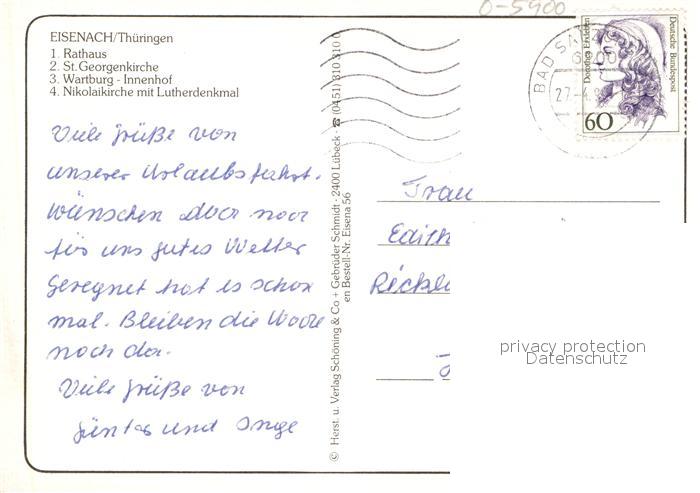 O-5900
EISENACH/Thüringen
1. Rathaus
2. St. Georgenkirche
3. Wartburg - Innenhof
4. Nikolaikirche mit Lutherdenkmal
Viele Grüße von
unserer Urlaubsfahrt.
Wünschen
für uns gutes Wetter
Geregnet hat es schon
mal. Bleiben die Woche
noch da.
Viele Grüße von
Günter und Inge
© Herst. u. Verlag Schöning & Co + Gebrüder Schmidt · 2400 Lübeck · ☎ (04 51) 310 310
en Bestell-Nr. Eisena 56
BAD SA
27.-4.
Dorothea Erxleben
Deutsche Bundespost
60
Frau
Edith
privacy protection
Datenschutz